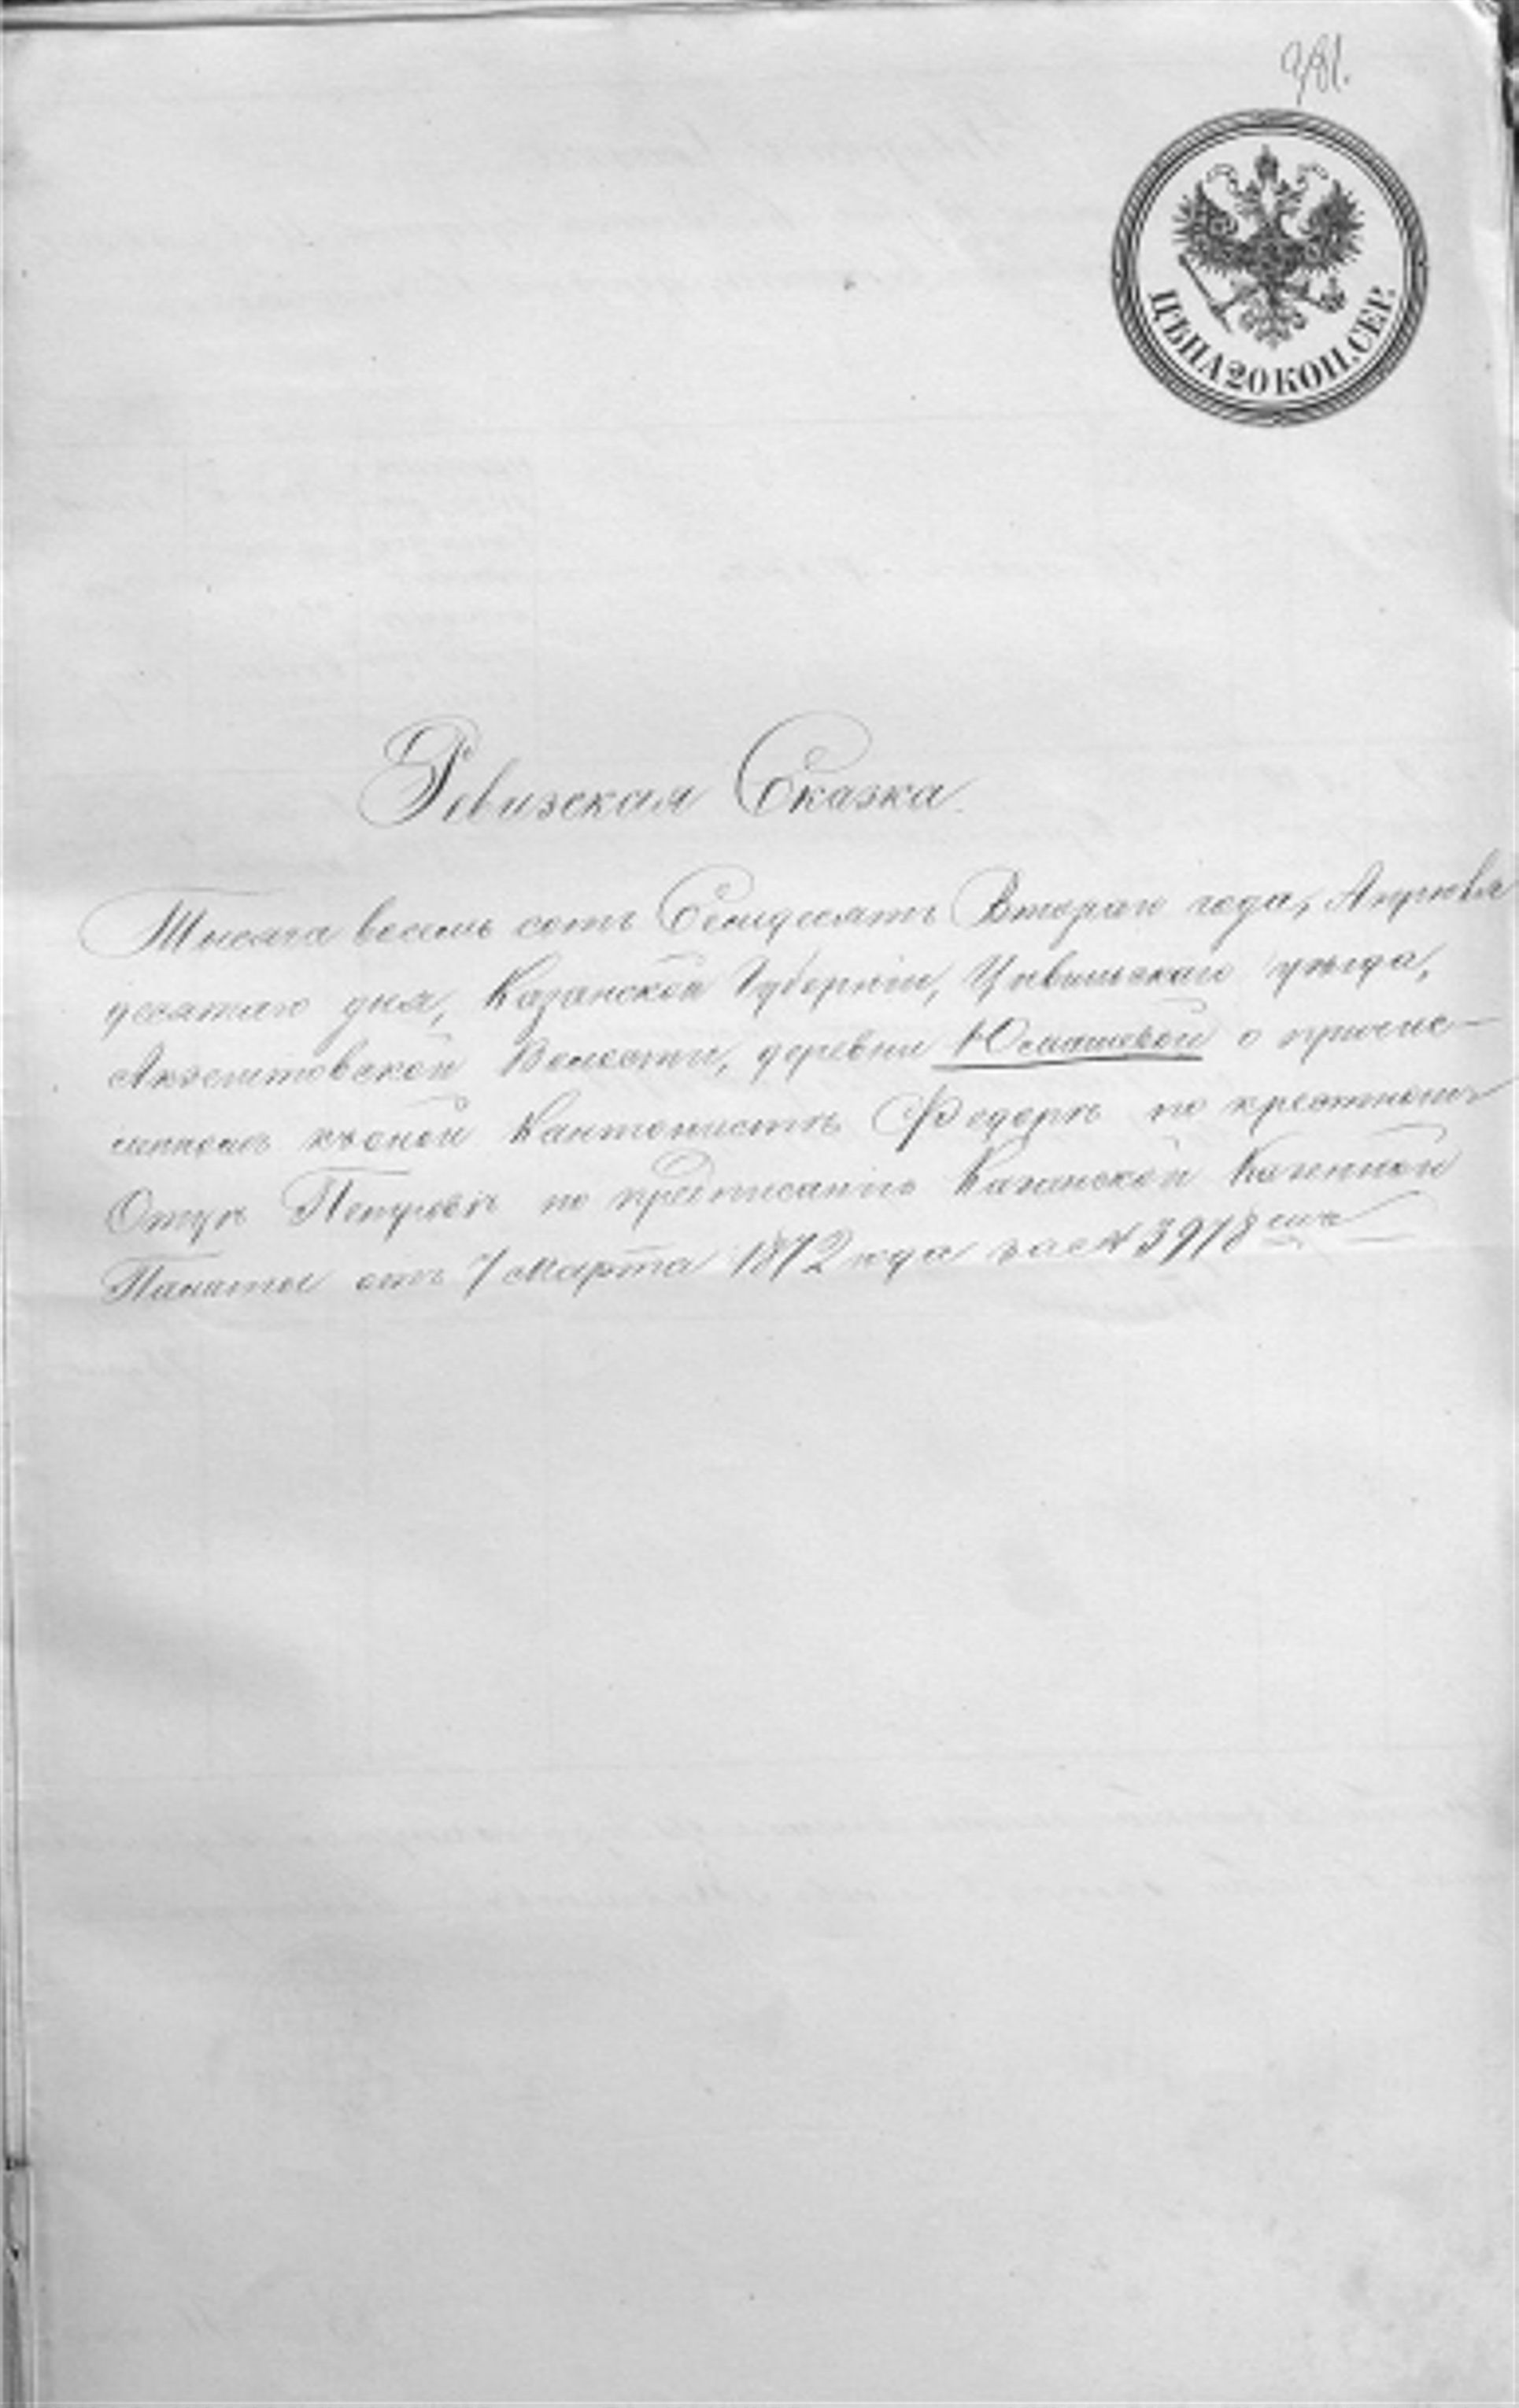 981.
ЦѢНА 20 КОП. СЕР.
Ревизская Сказка.
Тысяча восемь сотъ Семдесятъ Втораго года, Апрѣля
десятаго дня, Казанской Губерніи, Цивильскаго уѣзда,
Волости, деревни Юмашевой о причис-
къ оной Кантонистѣ Федорѣ по крестному
Отцу Петровѣ по предписанію Казанской Казенной
Палаты отъ 7 Марта 1872 года за № 3978мъ